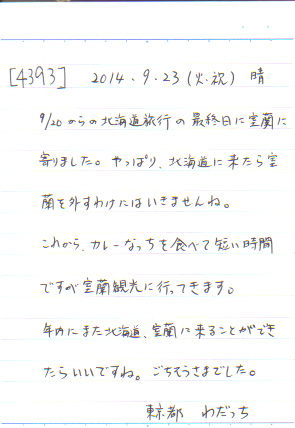 [4393] 2014.9.23(火・祝) 晴
9/20からの北海道旅行の最終日に室蘭に
寄りました。やっぱり、北海道に来たら室
蘭を外すわけにはいきませんね。
これから、カレーなっちを食べて短い時間
ですが室蘭観光に行ってきます。
年内にまた北海道、室蘭に来ることができ
たらいいですね。ごちそうさまでした。
東京都 わだっち